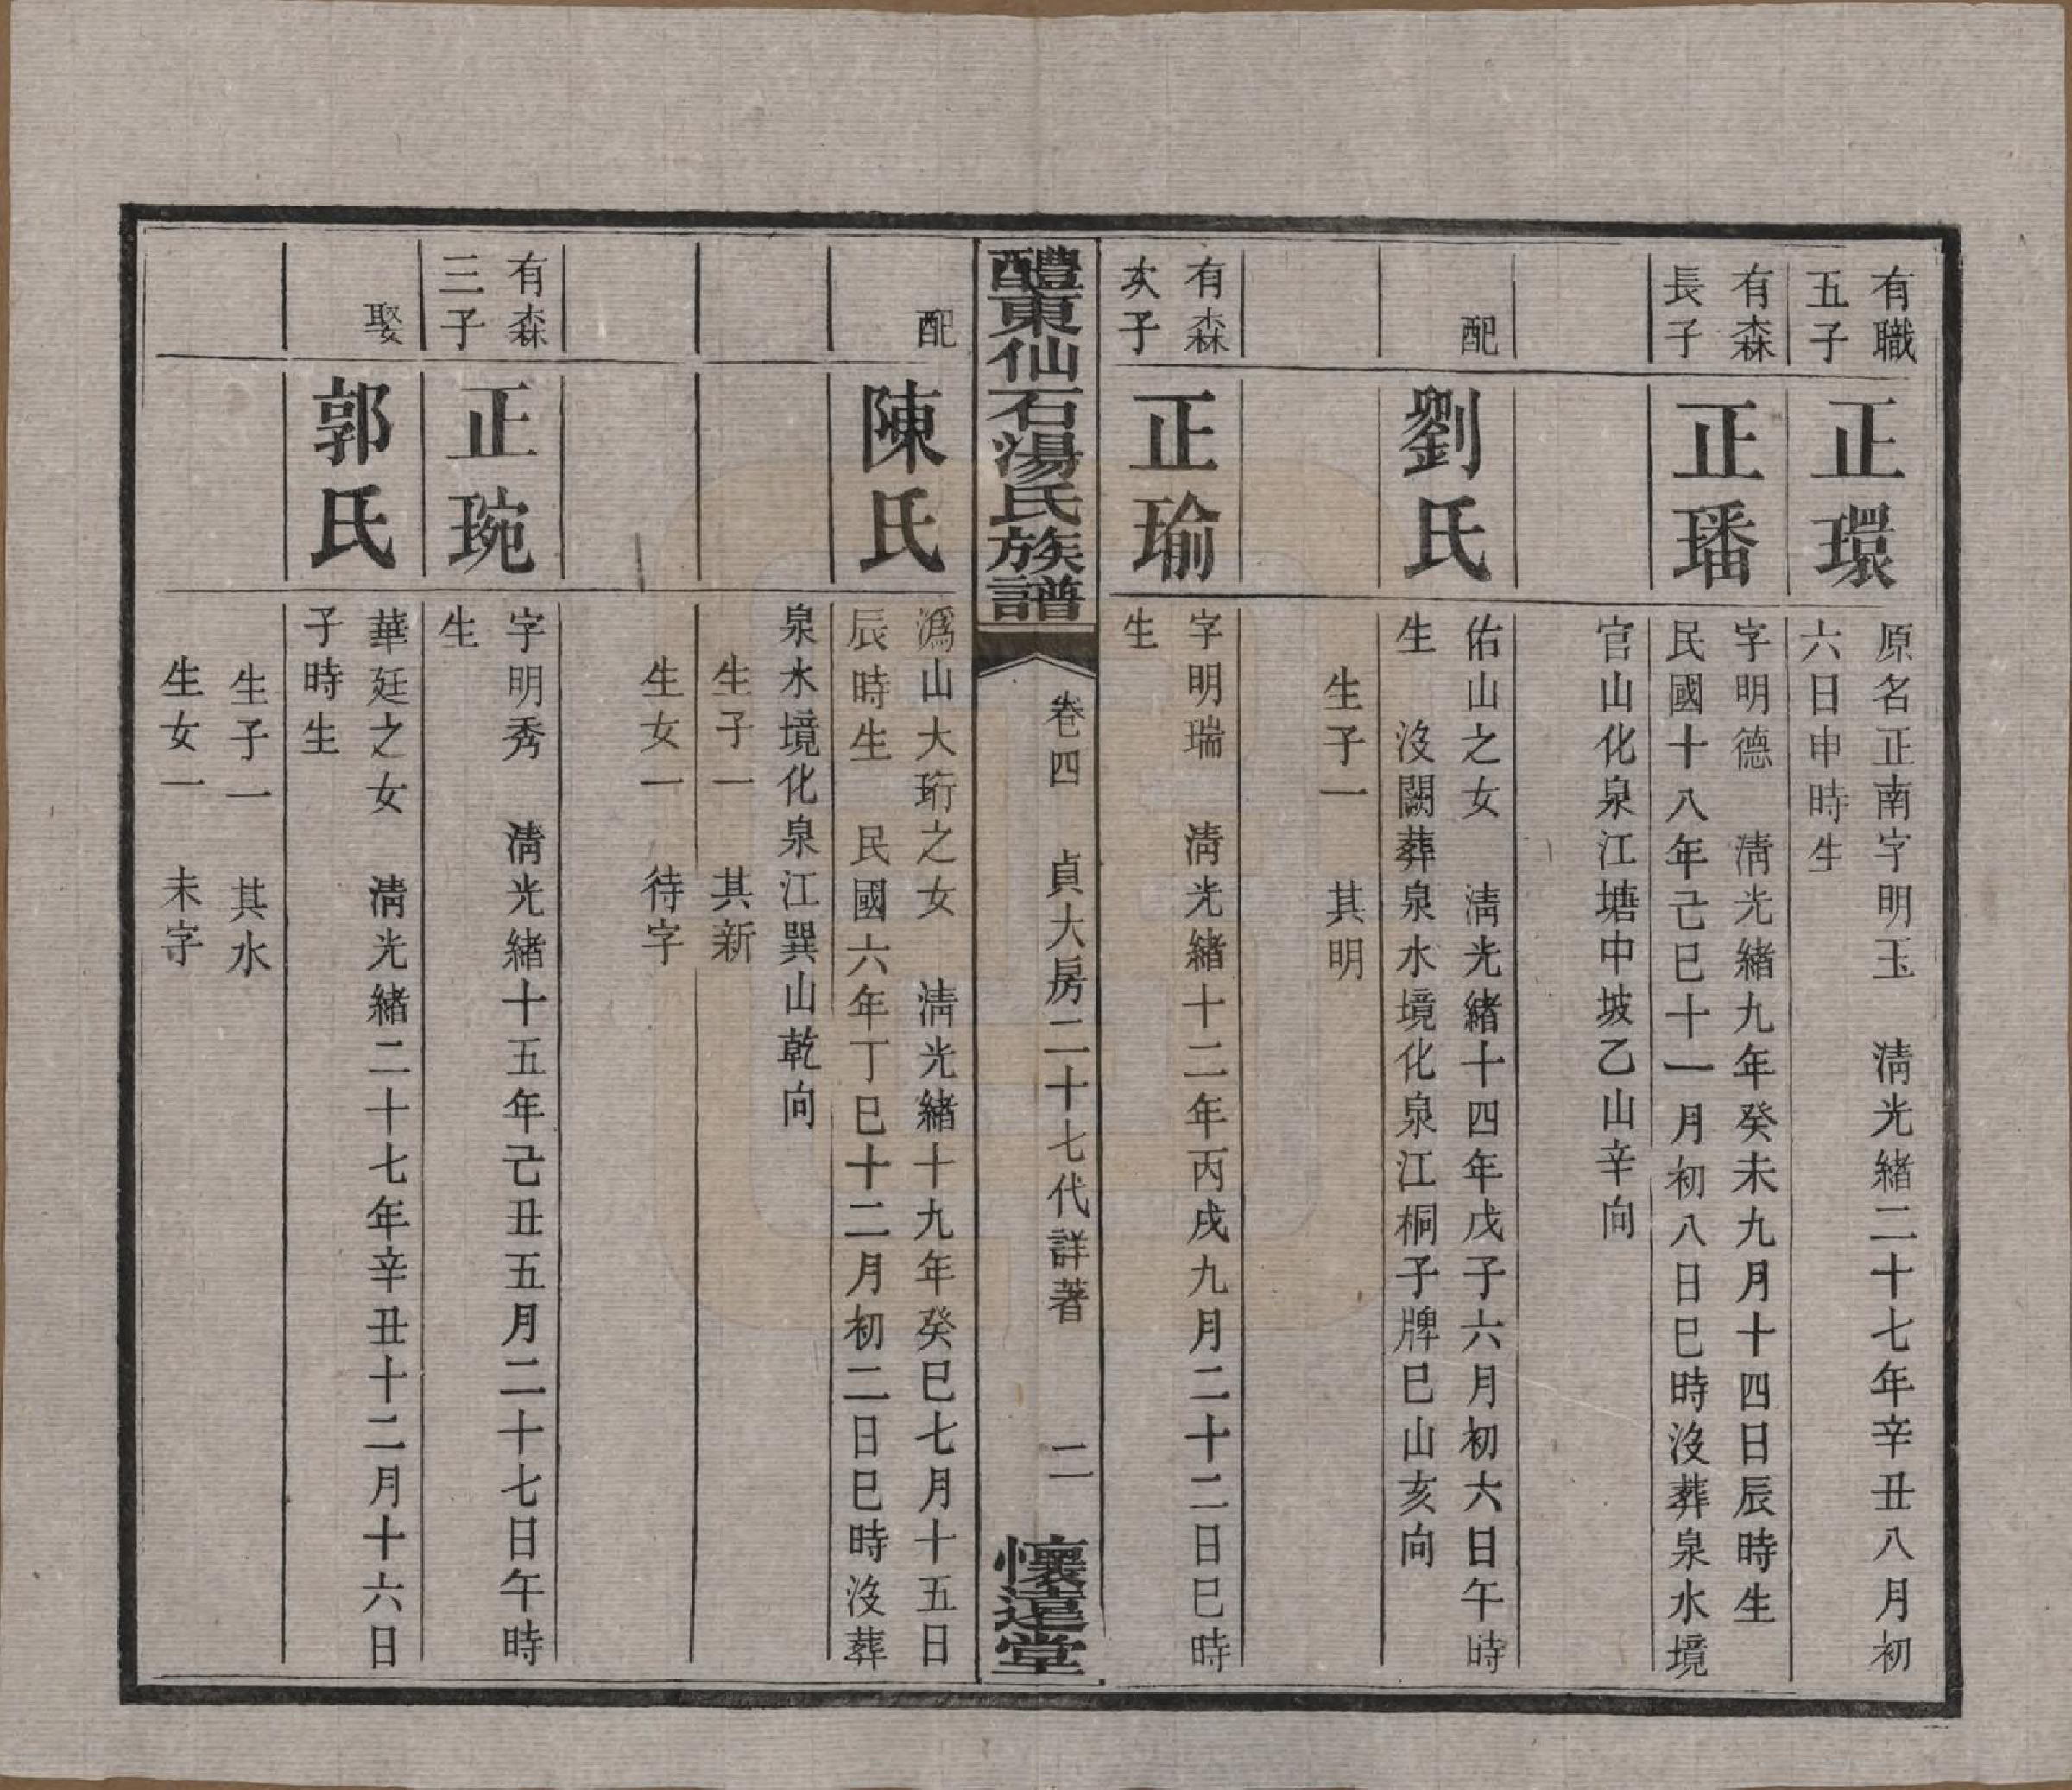 有職
五子
正環
原名正南字明玉　淸光緖二十七年辛丑八月初
六日申時生
有森
長子
正璠
字明德　淸光緖九年癸未九月十四日辰時生
民國十八年己巳十一月初八日巳時沒葬泉水境
官山化泉江塘中坡乙山辛向
配
劉氏
佑山之女　淸光緖十四年戊子六月初六日午時
生　沒闕葬泉水境化泉江桐子牌巳山亥向
生子一　其明
有森
次子
正瑜
字明瑞　淸光緖十二年丙戌九月二十二日巳時
生
醴東仙石湯氏族譜
卷四　貞大房二十七代詳著　二
懷遠堂
配
陳氏
溈山大珩之女　淸光緖十九年癸巳七月十五日
辰時生　民國六年丁巳十二月初二日巳時沒葬
泉水境化泉江巽山乾向
生子一　其新
生女一　待字
有森
三子
正琬
字明秀　淸光緖十五年己丑五月二十七日午時
生
娶
郭氏
華廷之女　淸光緖二十七年辛丑十二月十六日
子時生
生子一　其水
生女一　未字